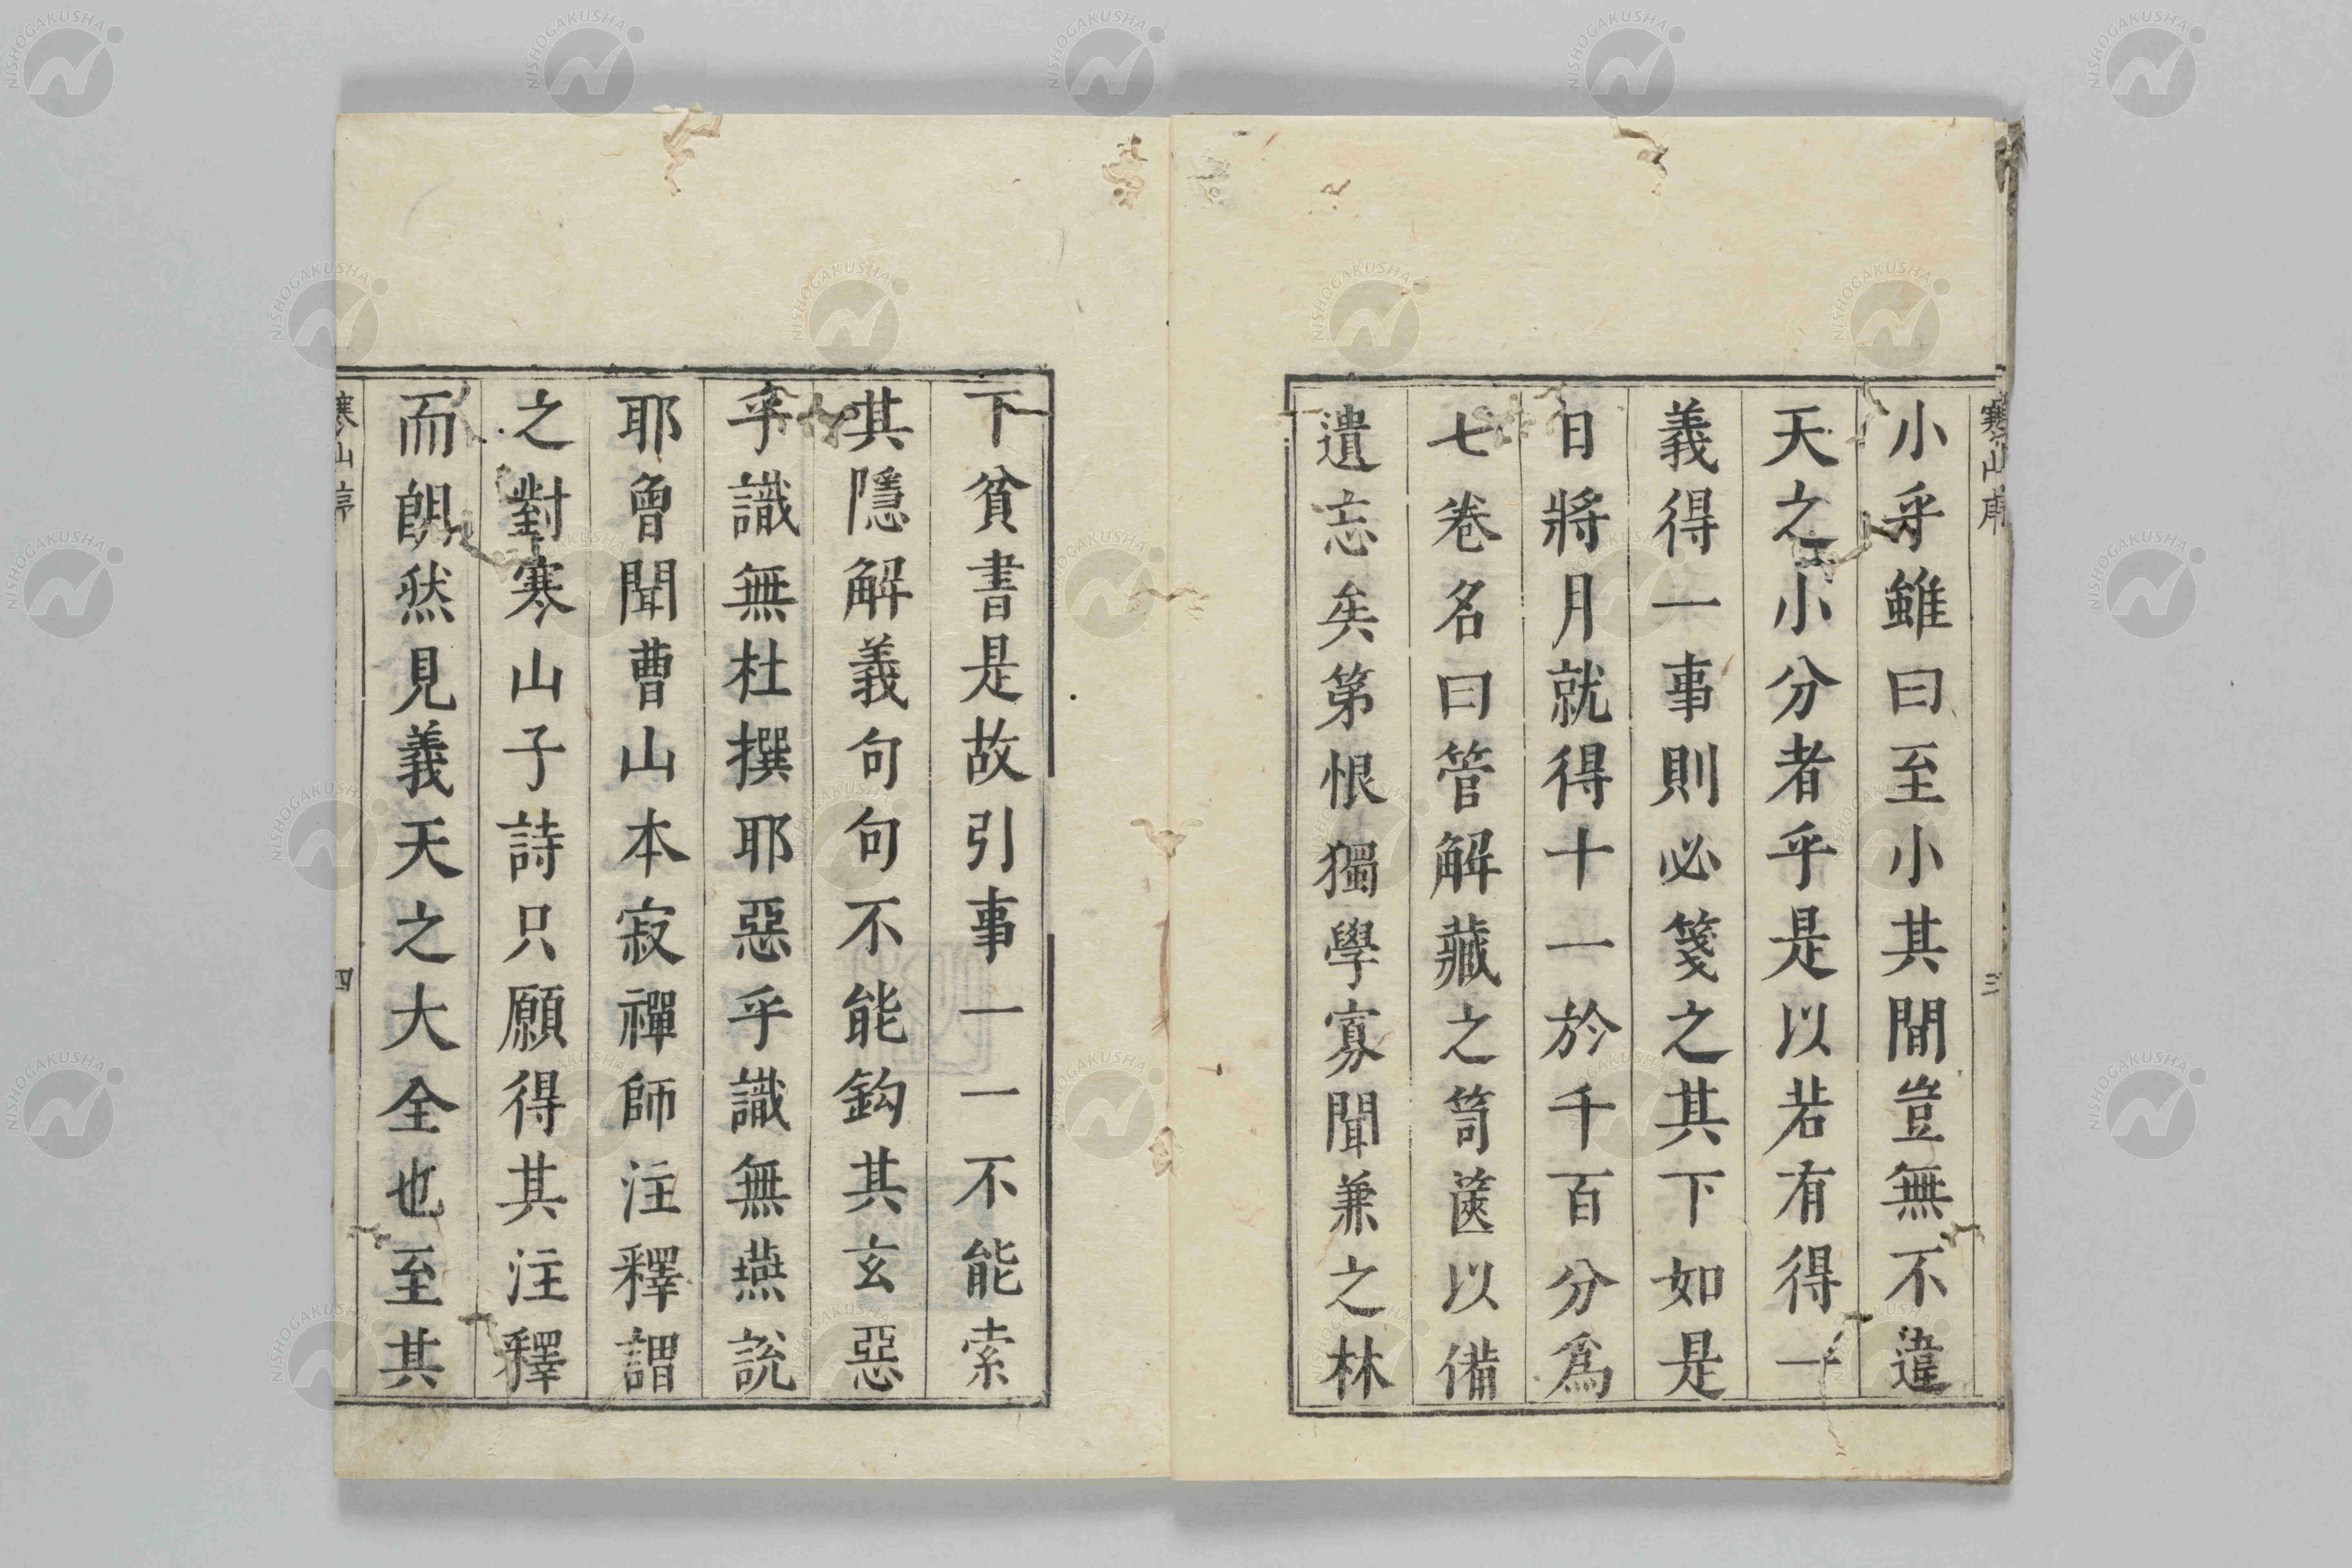 小乎雖曰至小其間豈無不違
天之小分者乎是以若有得一
義得一事則必箋之其下如是
日將月就得十一於千百分爲
七卷名曰管解藏之笥篋以備
遺忘矣第恨獨學寡聞兼之林
下貧書是故引事一一不能索
其隱解義句句不能鈎其玄惡
乎識無杜撰耶惡乎識無燕說
耶曾聞曹山本寂禪師注釋謂
之對寒山子詩只願得其注釋
而朗然見義天之大全也至其
寒山序
三
四
NISHOGAKUSHA